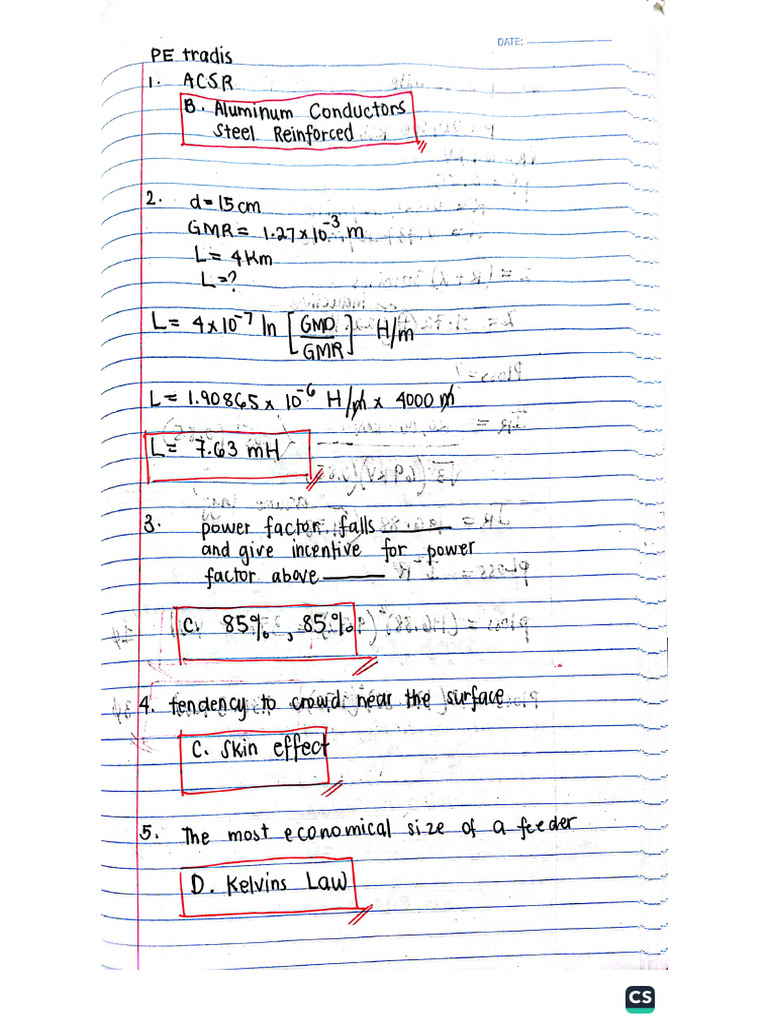 DATE:
PE tradis
1. ACSR
B. Aluminum Conductors
Steel Reinforced
2. d=15cm
GMR= 1.27x10^-3 m
L= 4Km
L=?
L= 4x10^-7 ln [GMD/GMR] H/m
L= 1.90865x 10^-6 H/m x 4000 m
L= 7.63 mH
3. power factor falls ______
and give incentive for power
factor above ______
C. 85% , 85%
4. tendency to crowd near the surface
C. Skin effect
5. The most economical size of a feeder
D. Kelvins Law
CS